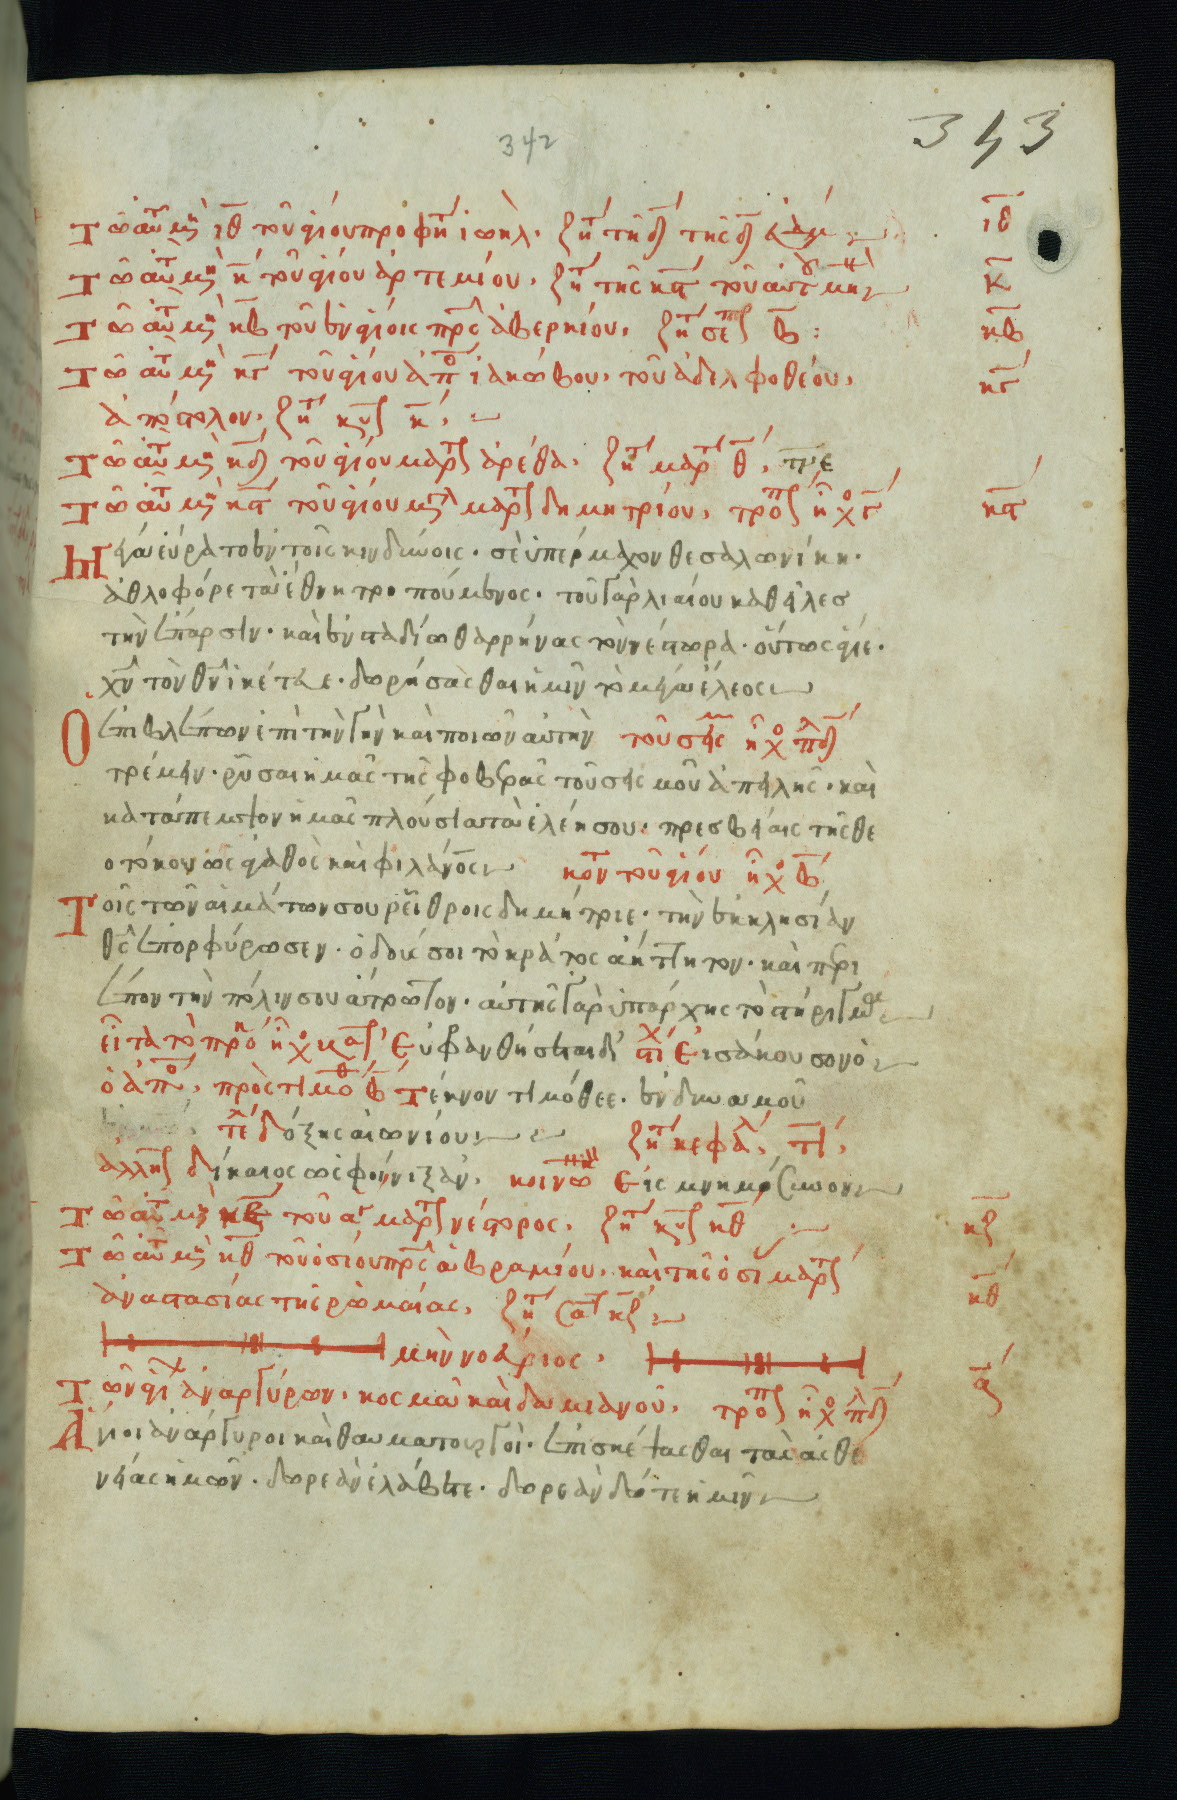 342
343
Τῶ αὐτ μη ιθ τοῦ ἁγίου προφη ἰωήλ. ζητ τῆ δ τῆς δ ιθ
Τῶ αὐτ μη κ τοῦ ἁγίου ἀρτεμίου. ζητ τῆς κς τοῦ αὐτ μη κ
Τῶ αὐτ μη κβ τοῦ ἐν ἁγίοις πρς ἀβερκίου. ζητ σεπ β: κβ
Τῶ αὐτ μη κγ τοῦ ἁγίου ἀπο ἰακώβου. τοῦ ἀδελφοθέου. κγ
ἀπόστολον. ζητ κυρ κ.
Τῶ αὐτ μη κδ τοῦ ἁγίου μαρτ ἀρέθα. ζητ μαρτ θ.
Τῶ αὐτ μη κς τοῦ ἁγίου μγλ μαρτ δημητρίου. τροπ ἦχο γ κς
Μέγαν εὕρατο ἐν τοῖς κινδύνοις. σὲ ὑπέρμαχον θεσαλωνίκη.
ἀθλοφόρε τὰ ἔθνη τροπούμενος. τοῦ γὰρ λιαίου καθεῖλες
τὴν ἔπαρσιν. καὶ ἐν σταδίω θαρρήνας τὸν νέστωρα. οὕτως ἅγιε.
χν τὸν θν ἱκέτευε. δωρήσασθαι ἡμῖν τὸ μέγα ἔλεος
Ὁ ἐπιβλέπων ἐπὶ τὴν γῆν καὶ ποιῶν αὐτὴν τοῦ σεισ ἦχο πλ δ
τρέμειν. ῥῦσαι ἡμᾶς τῆς φοβερᾶς τοῦ σεισμοῦ ἀπειλῆς. καὶ
κατάπεμψον ἡμᾶς πλούσια τὰ ἐλέη σου. πρεσβείαις τῆς θε
οτόκου ὡς ἀγαθὸς καὶ φιλάνος κον τοῦ ἁγίου ἦχο β
Τοῖς τῶν αἱμάτων σου ῥείθροις δημήτριε. τὴν ἐκκλησίαν
θς ἐπορφύρωσεν. ὁ δούς σοι τὸ κράτος ἀήττητον. καὶ περι
έπον τὴν πόλιν σου ἄτρωτον. αὐτῆς γὰρ ὑπάρχεις τὸ στήριγμα
εἶτα τὸ προκ ἦχο Εὐφρανθήσεται δι στι Εἰσάκουσον ὁ
ὁ ἀπο. πρὸς τιμοθ β Τέκνον τιμόθεε. ἐνδυναμοῦ
τε δόξης αἰωνίου ζητ κεφα.
ἀλλη δίκαιος ὡς φοίνιξ αν. κοινω Εἰς μνημόσυνον
Τῶ αὐτ μη τοῦ α μαρτ νέστορος. ζητ κυρ κθ κζ
Τῶ αὐτ μη κθ τοῦ ὁσίου πρς ἀβραμίου. καὶ τῆς ὁσι μαρτ
ἀναστασίας τῆς ῥωμαίας. ζητ κθ
μὴν νοέμριος.
Τῶν ἁγι ἀναργύρων. κοσμᾶ καὶ δαμιανοῦ. τροπ ἦχο πλ δ α
Ἅγιοι ἀνάργυροι καὶ θαυματουργοὶ. ἐπισκέψασθαι τὰς ἀσθε
νείας ἡμῶν. δωρεὰν ἐλάβετε. δωρεὰν δότε ἡμῖν